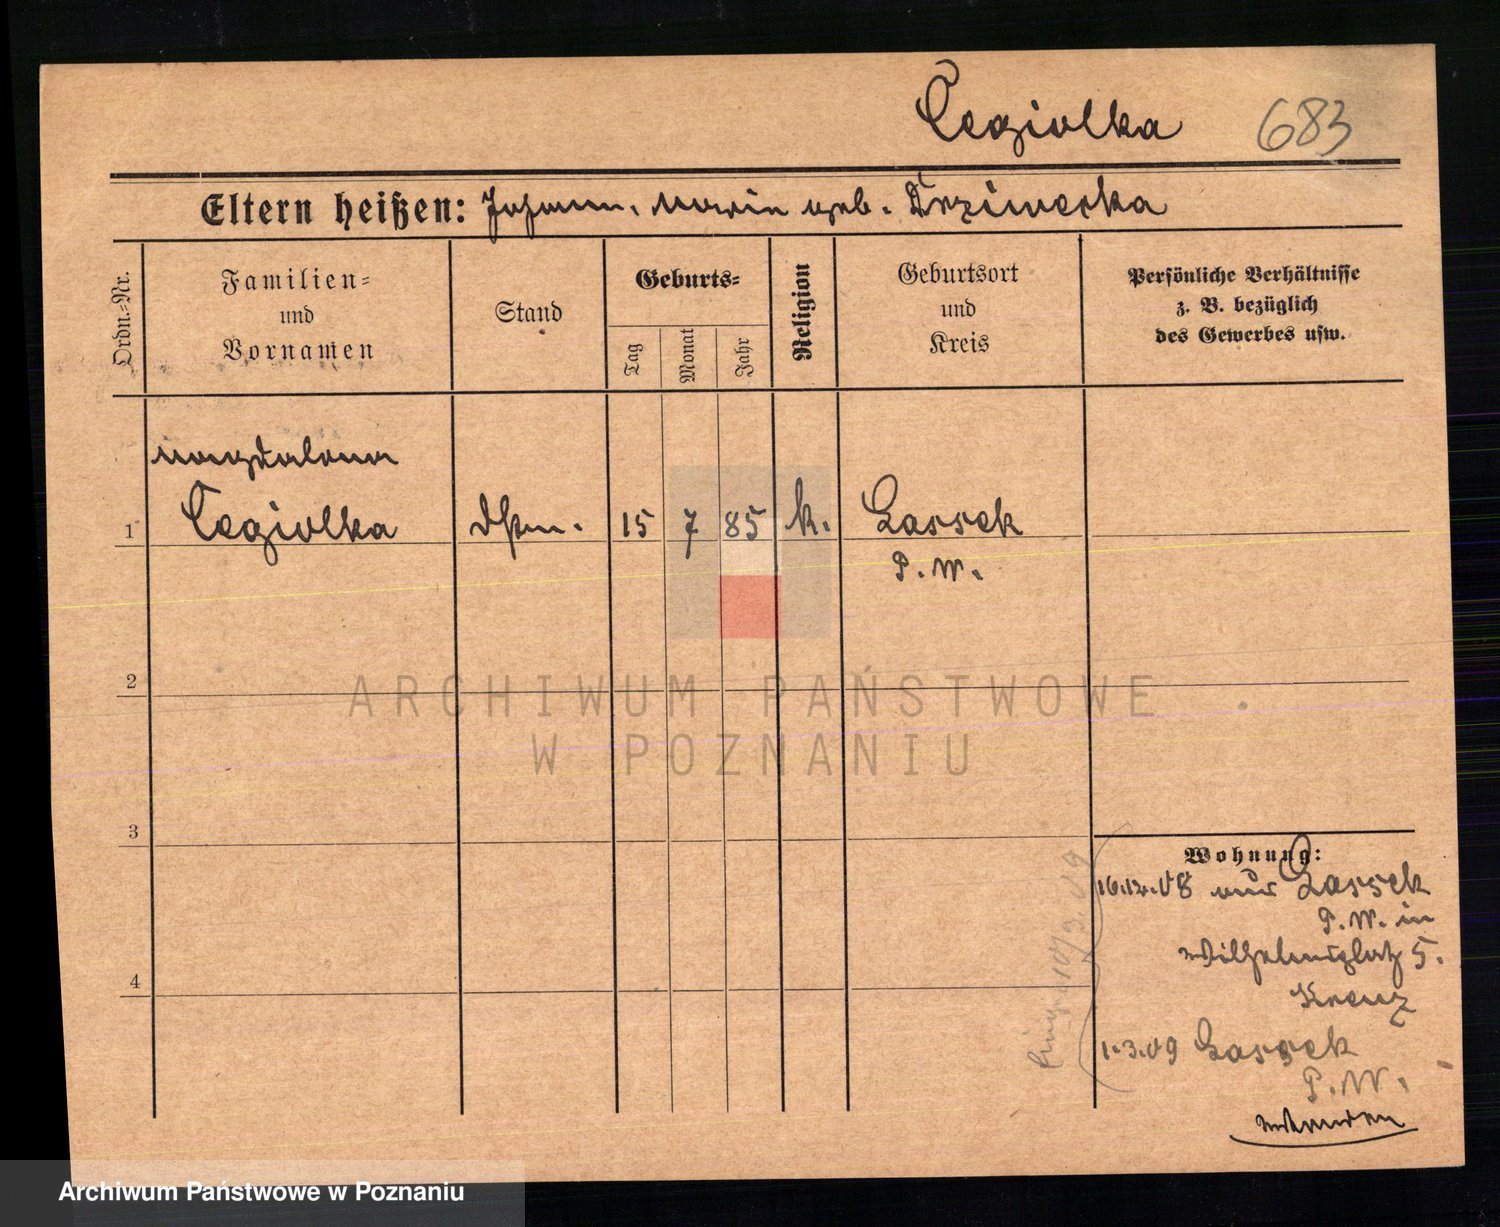 Cegiolka 683
Eltern heißen: Johann, Maria geb. Drzimecka
Ordn.-Nr.
Familien-
und
Vornamen
Stand
Geburts-
Tag
Monat
Jahr
Religion
Geburtsort
und
Kreis
Persönliche Verhältnisse
z. B. bezüglich
des Gewerbes usw.
Magdalena
1 Cegiolka Dstm. 15 7 85 k. Lassek
P. W.
2
ARCHIWUM PAŃSTWOWE
W POZNANIU
3
Wohnung:
16.12.08 aus Lassek
P. W. in
Wilhelmsplatz 5.
Kreuz
4
1.3.09 Lassek
P. W.
wenden
10/3.09
Archiwum Państwowe w Poznaniu